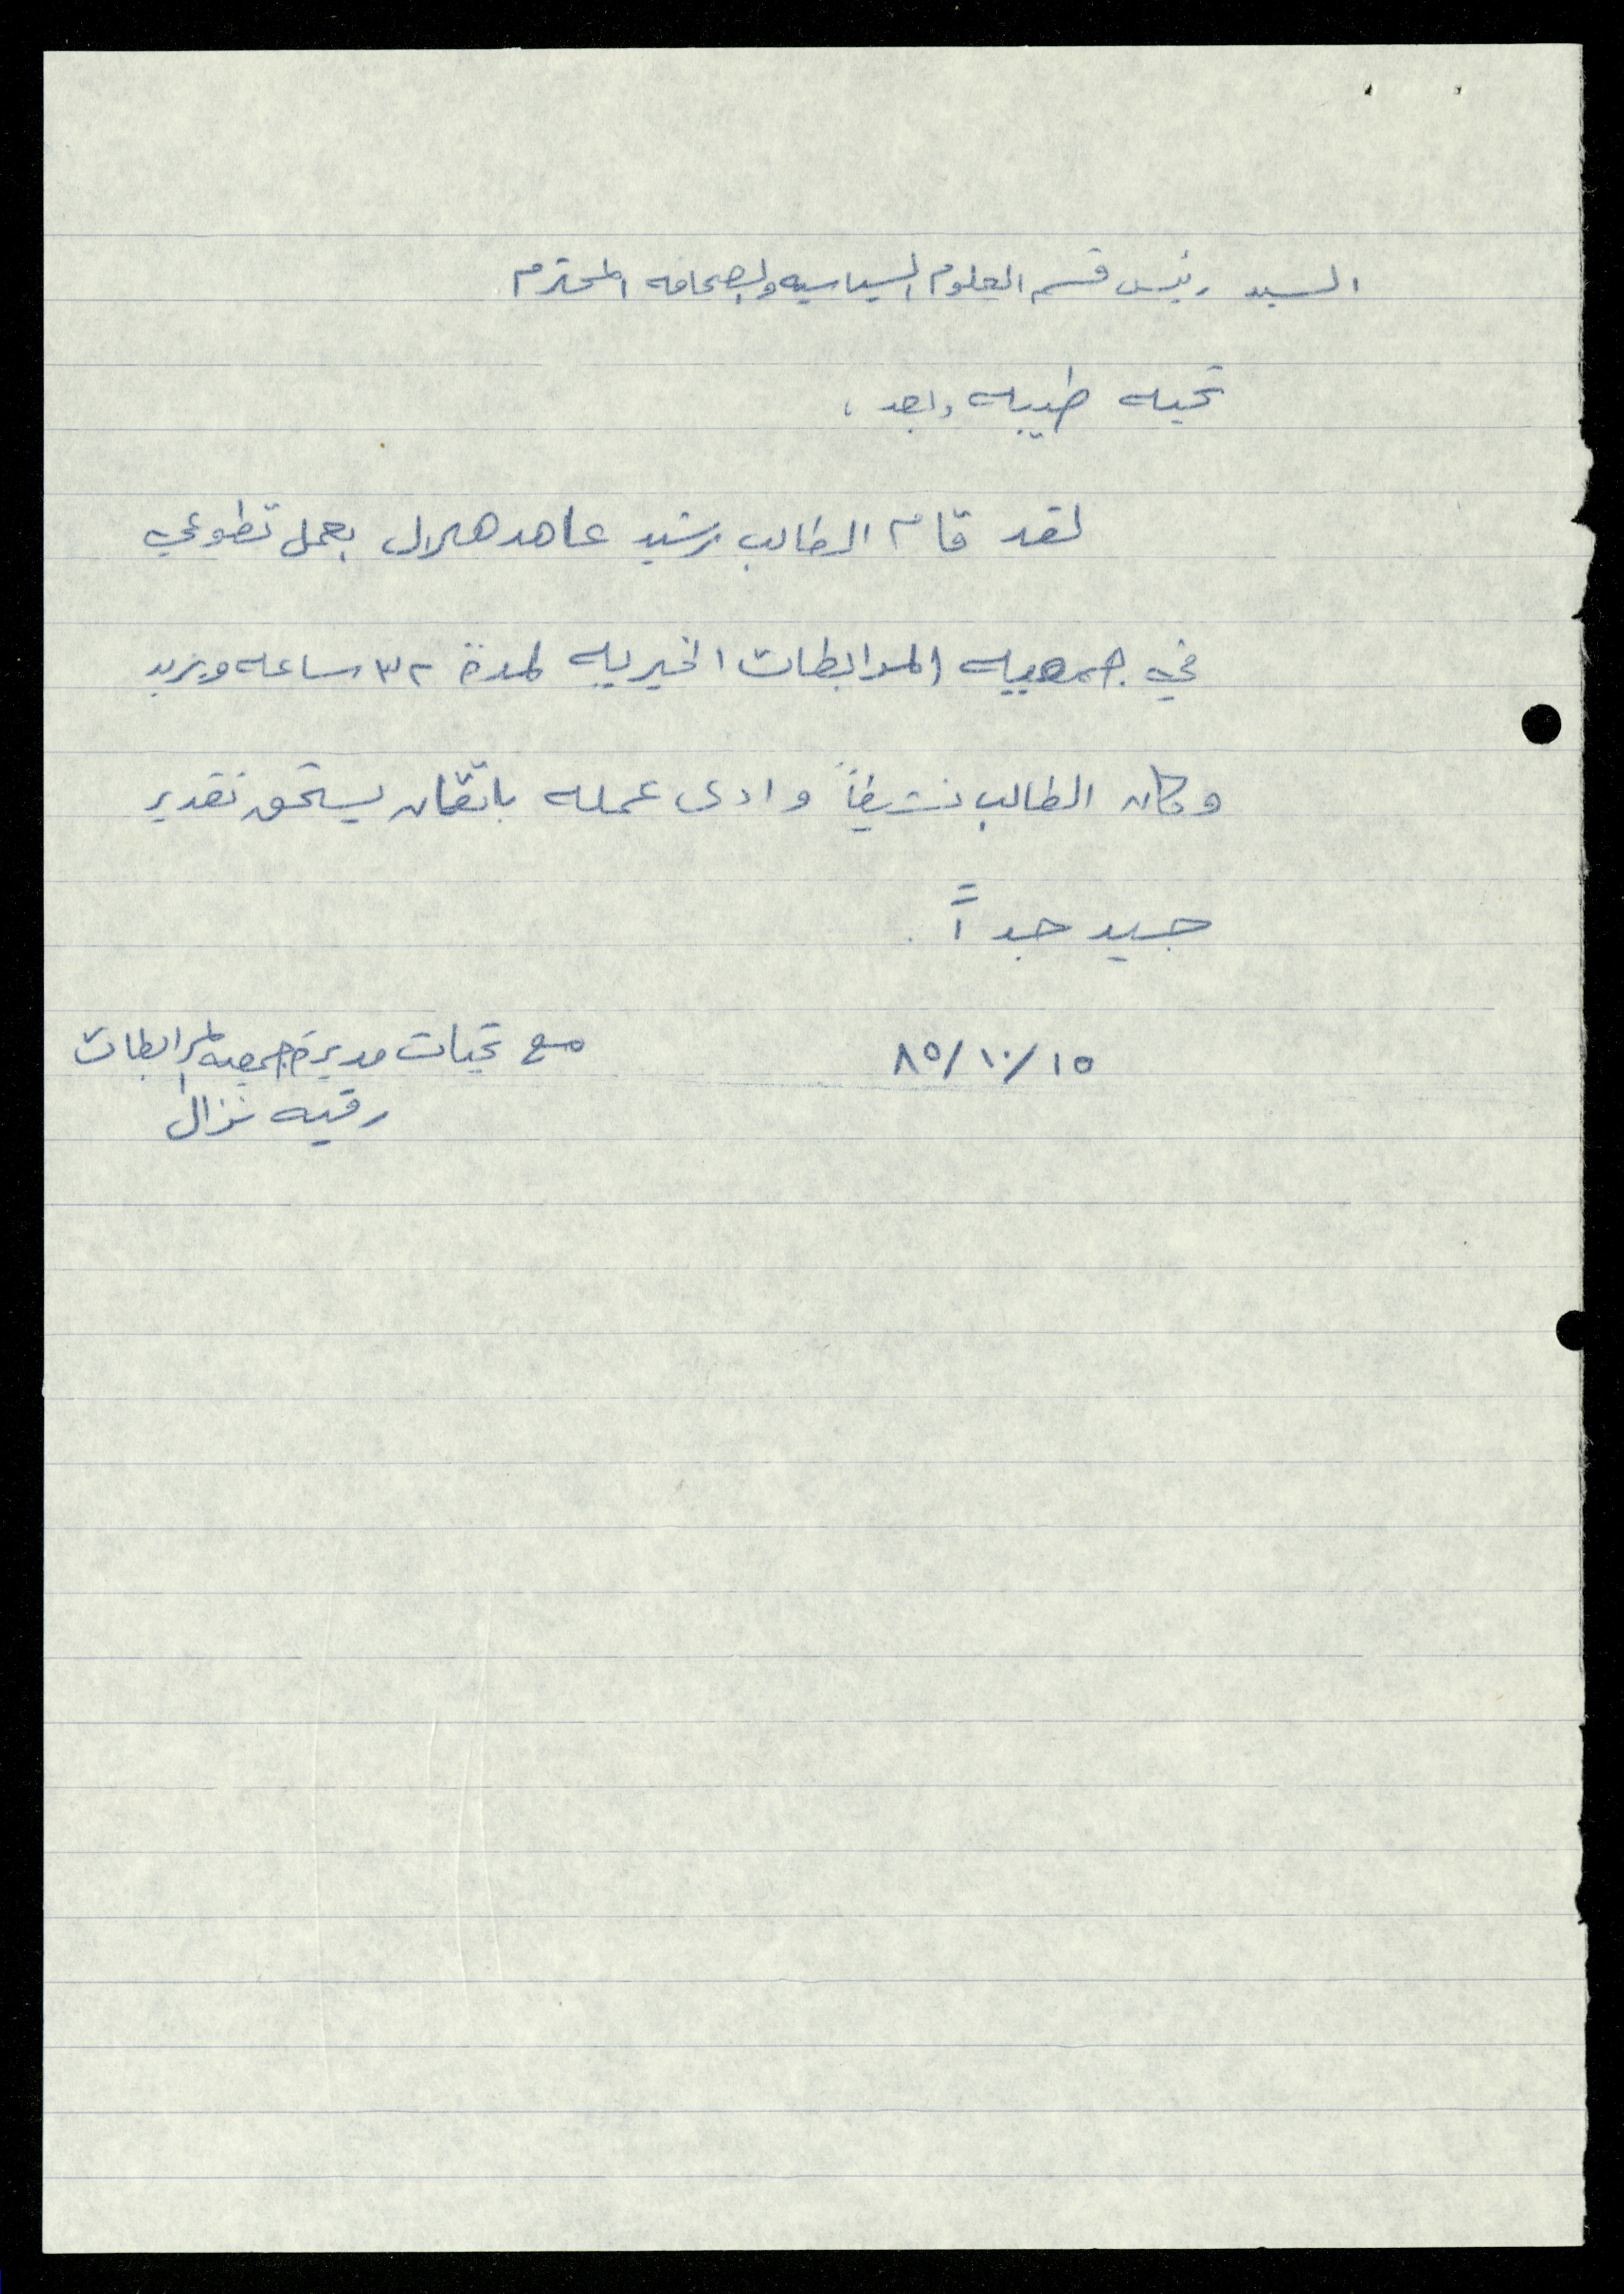 السيد رئيس قسم العلوم السياسيه والصحافه المحترم
تحيه طيبه وبعد ،
لقد قام الطالب رشيد عاهد هلال بعمل تطوعي
في جمعيه المرابطات الخيريه لمدة ٣٢ ساعه ويزيد
وكان الطالب نشيطاً وادى عمله باتقان يستحق تقدير
جيد جداً .
١٥/١٠/٨٥
مع تحيات مديرة جمعيه المرابطات
رقيه نزال